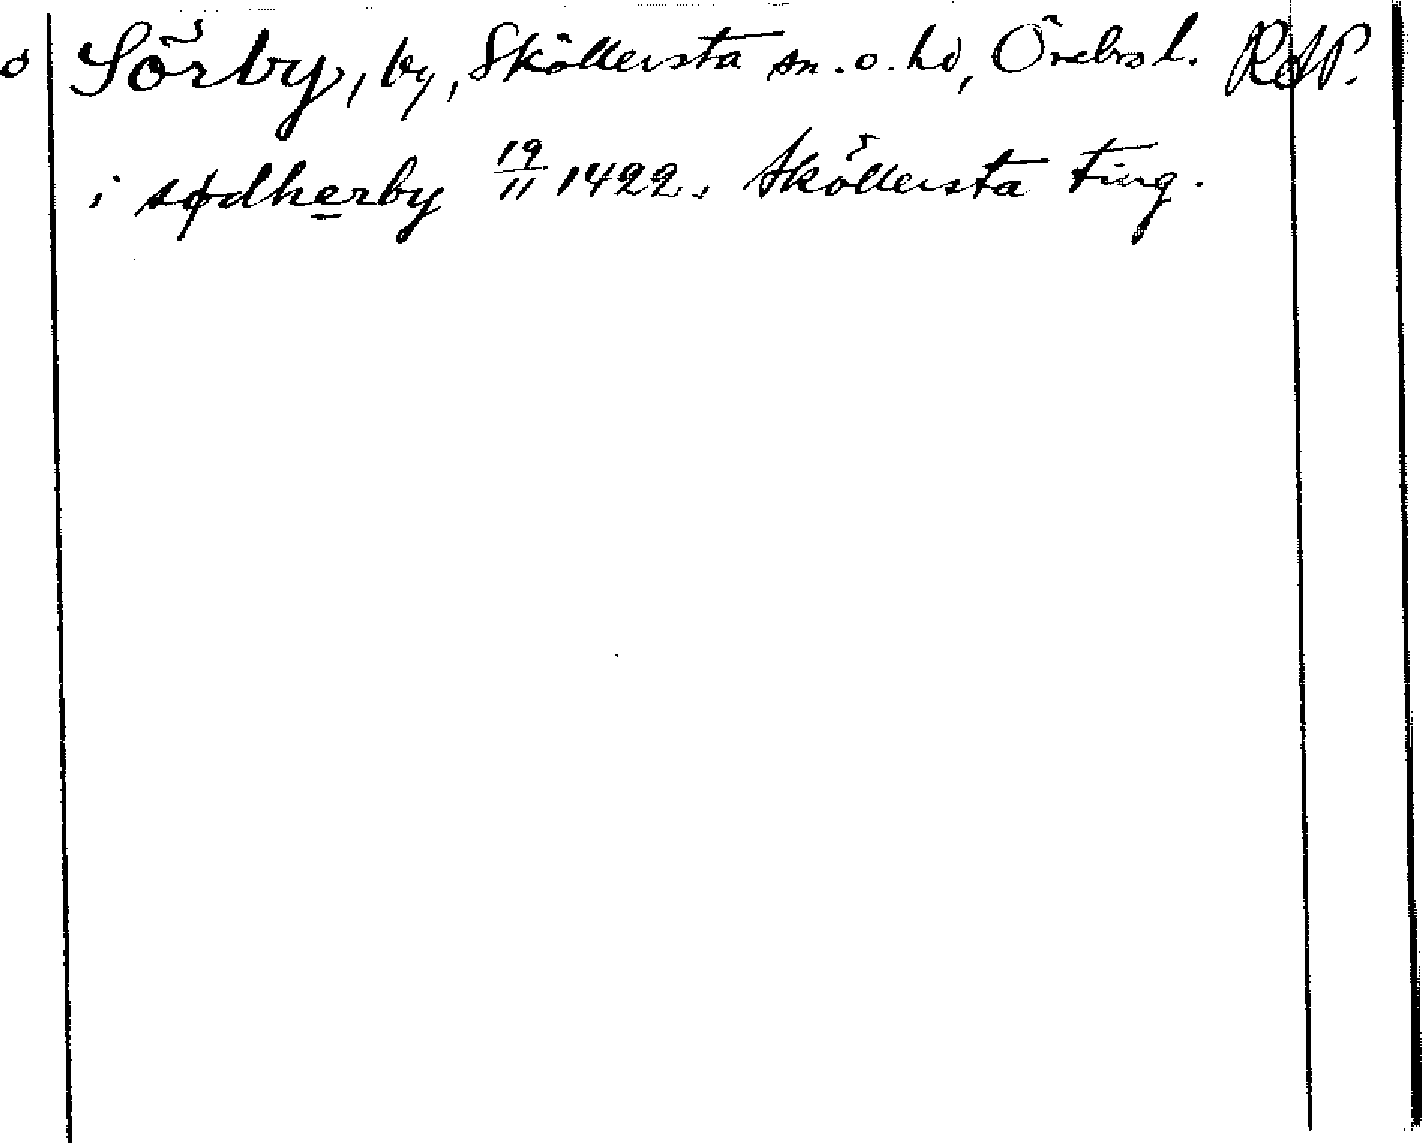 o Sörby, by, Sköllersta sn. o. hd, Örebro l. RAP.
i sødherby 19/11 1422. Sköllersta ting.